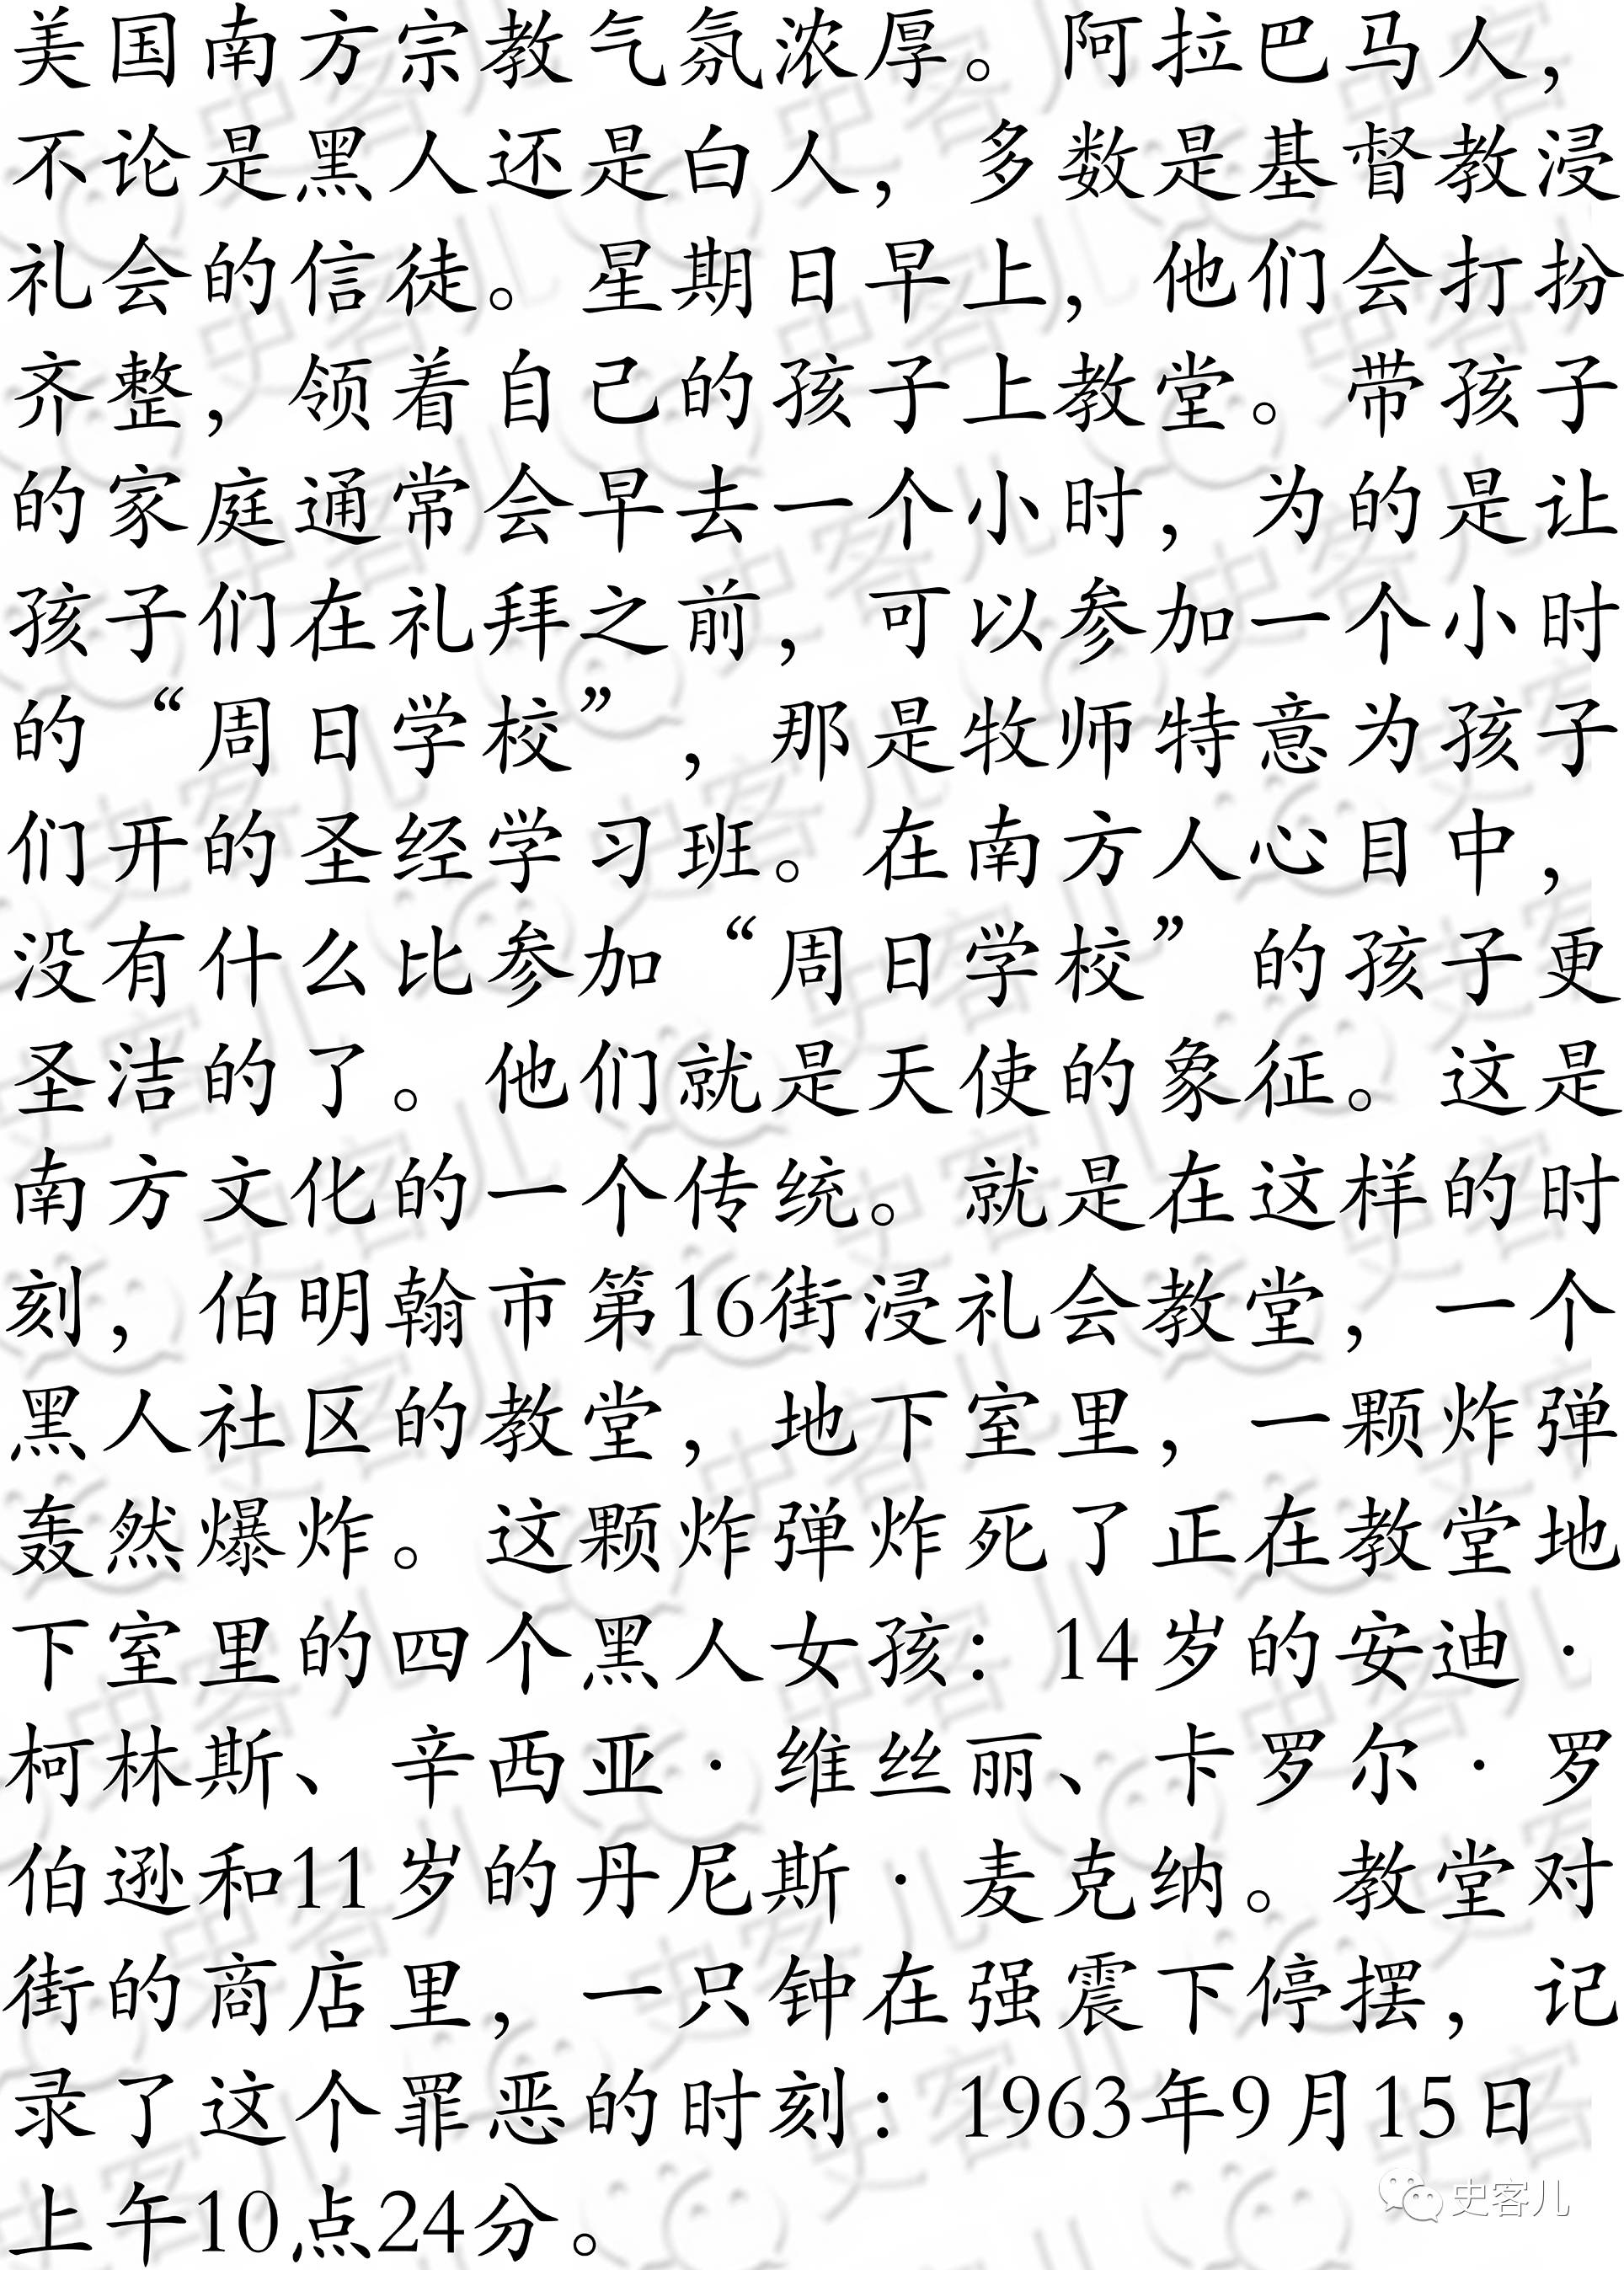 美国南方宗教气氛浓厚。阿拉巴马人，
不论是黑人还是白人，多数是基督教浸
礼会的信徒。星期日早上，他们会打扮
齐整，领着自己的孩子上教堂。带孩子
的家庭通常会早去一个小时，为的是让
孩子们在礼拜之前，可以参加一个小时
的“周日学校”，那是牧师特意为孩子
们开的圣经学习班。在南方人心目中，
没有什么比参加“周日学校”的孩子更
圣洁的了。他们就是天使的象征。这是
南方文化的一个传统。就是在这样的时
刻，伯明翰市第16街浸礼会教堂，一个
黑人社区的教堂，地下室里，一颗炸弹
轰然爆炸。这颗炸弹炸死了正在教堂地
下室里的四个黑人女孩：14岁的安迪·
柯林斯、辛西亚·维丝丽、卡罗尔·罗
伯逊和11岁的丹尼斯·麦克纳。教堂对
街的商店里，一只钟在强震下停摆，记
录了这个罪恶的时刻：1963年9月15日
上午10点24分。
史客儿